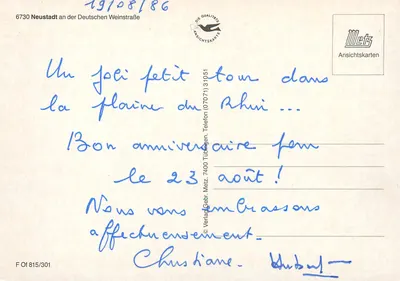 19/08/86
6730 Neustadt an der Deutschen Weinstraße
Metz
Ansichtskarten
Un joli petit tour dans
la plaine du Rhin ...
Bon anniversaire pour
le 23 août !
Nous vous embrassons
affectueusement.
Christiane. Hubert
© Verlag Gebr. Metz, 7400 Tübingen, Telefon (07071) 31051
F Of 815/301